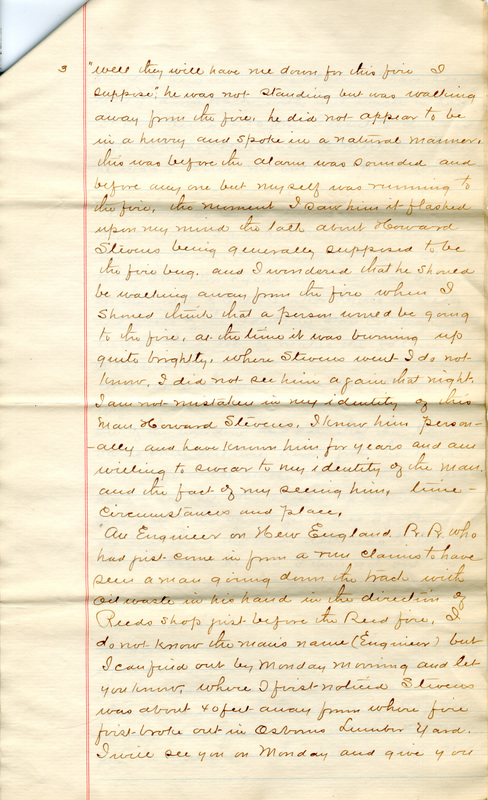 3 "Well they will have me down for this fire I
suppose", he was not standing but was walking
away from the fire, he did not appear to be
in a hurry and spoke in a natural manner,
this was before the alarm was sounded and
before any one but myself was running to
the fire, the moment I saw him it flashed
upon my mind the talk about Howard
Stevens being generally supposed to be
the fire bug. and I wondered that he should
be walking away from the fire when I
should think that a person would be going
to the fire, as the time it was burning up
quite brightly, where Stevens went I do not
know, I did not see him again that night.
I am not mistaken in my identity of this
man Howard Stevens, I know him person-
-ally and have known him for years and am
willing to swear to my identity of the man
and the fact of my seeing him, time-
circumstances and place,
"An Engineer on New England R.R. who
had just come in from a run claims to have
seen a man going down the track with
oil waste in his hand in the direction of
Reeds Shop just before the Reed fire, I
do not know the man's name (Engineer) but
I can find out by Monday morning and let
you know, where I first noticed Stevens
was about 40 feet away from where fire
first broke out in Osborns Lumber Yard.
I will see you on Monday and give you